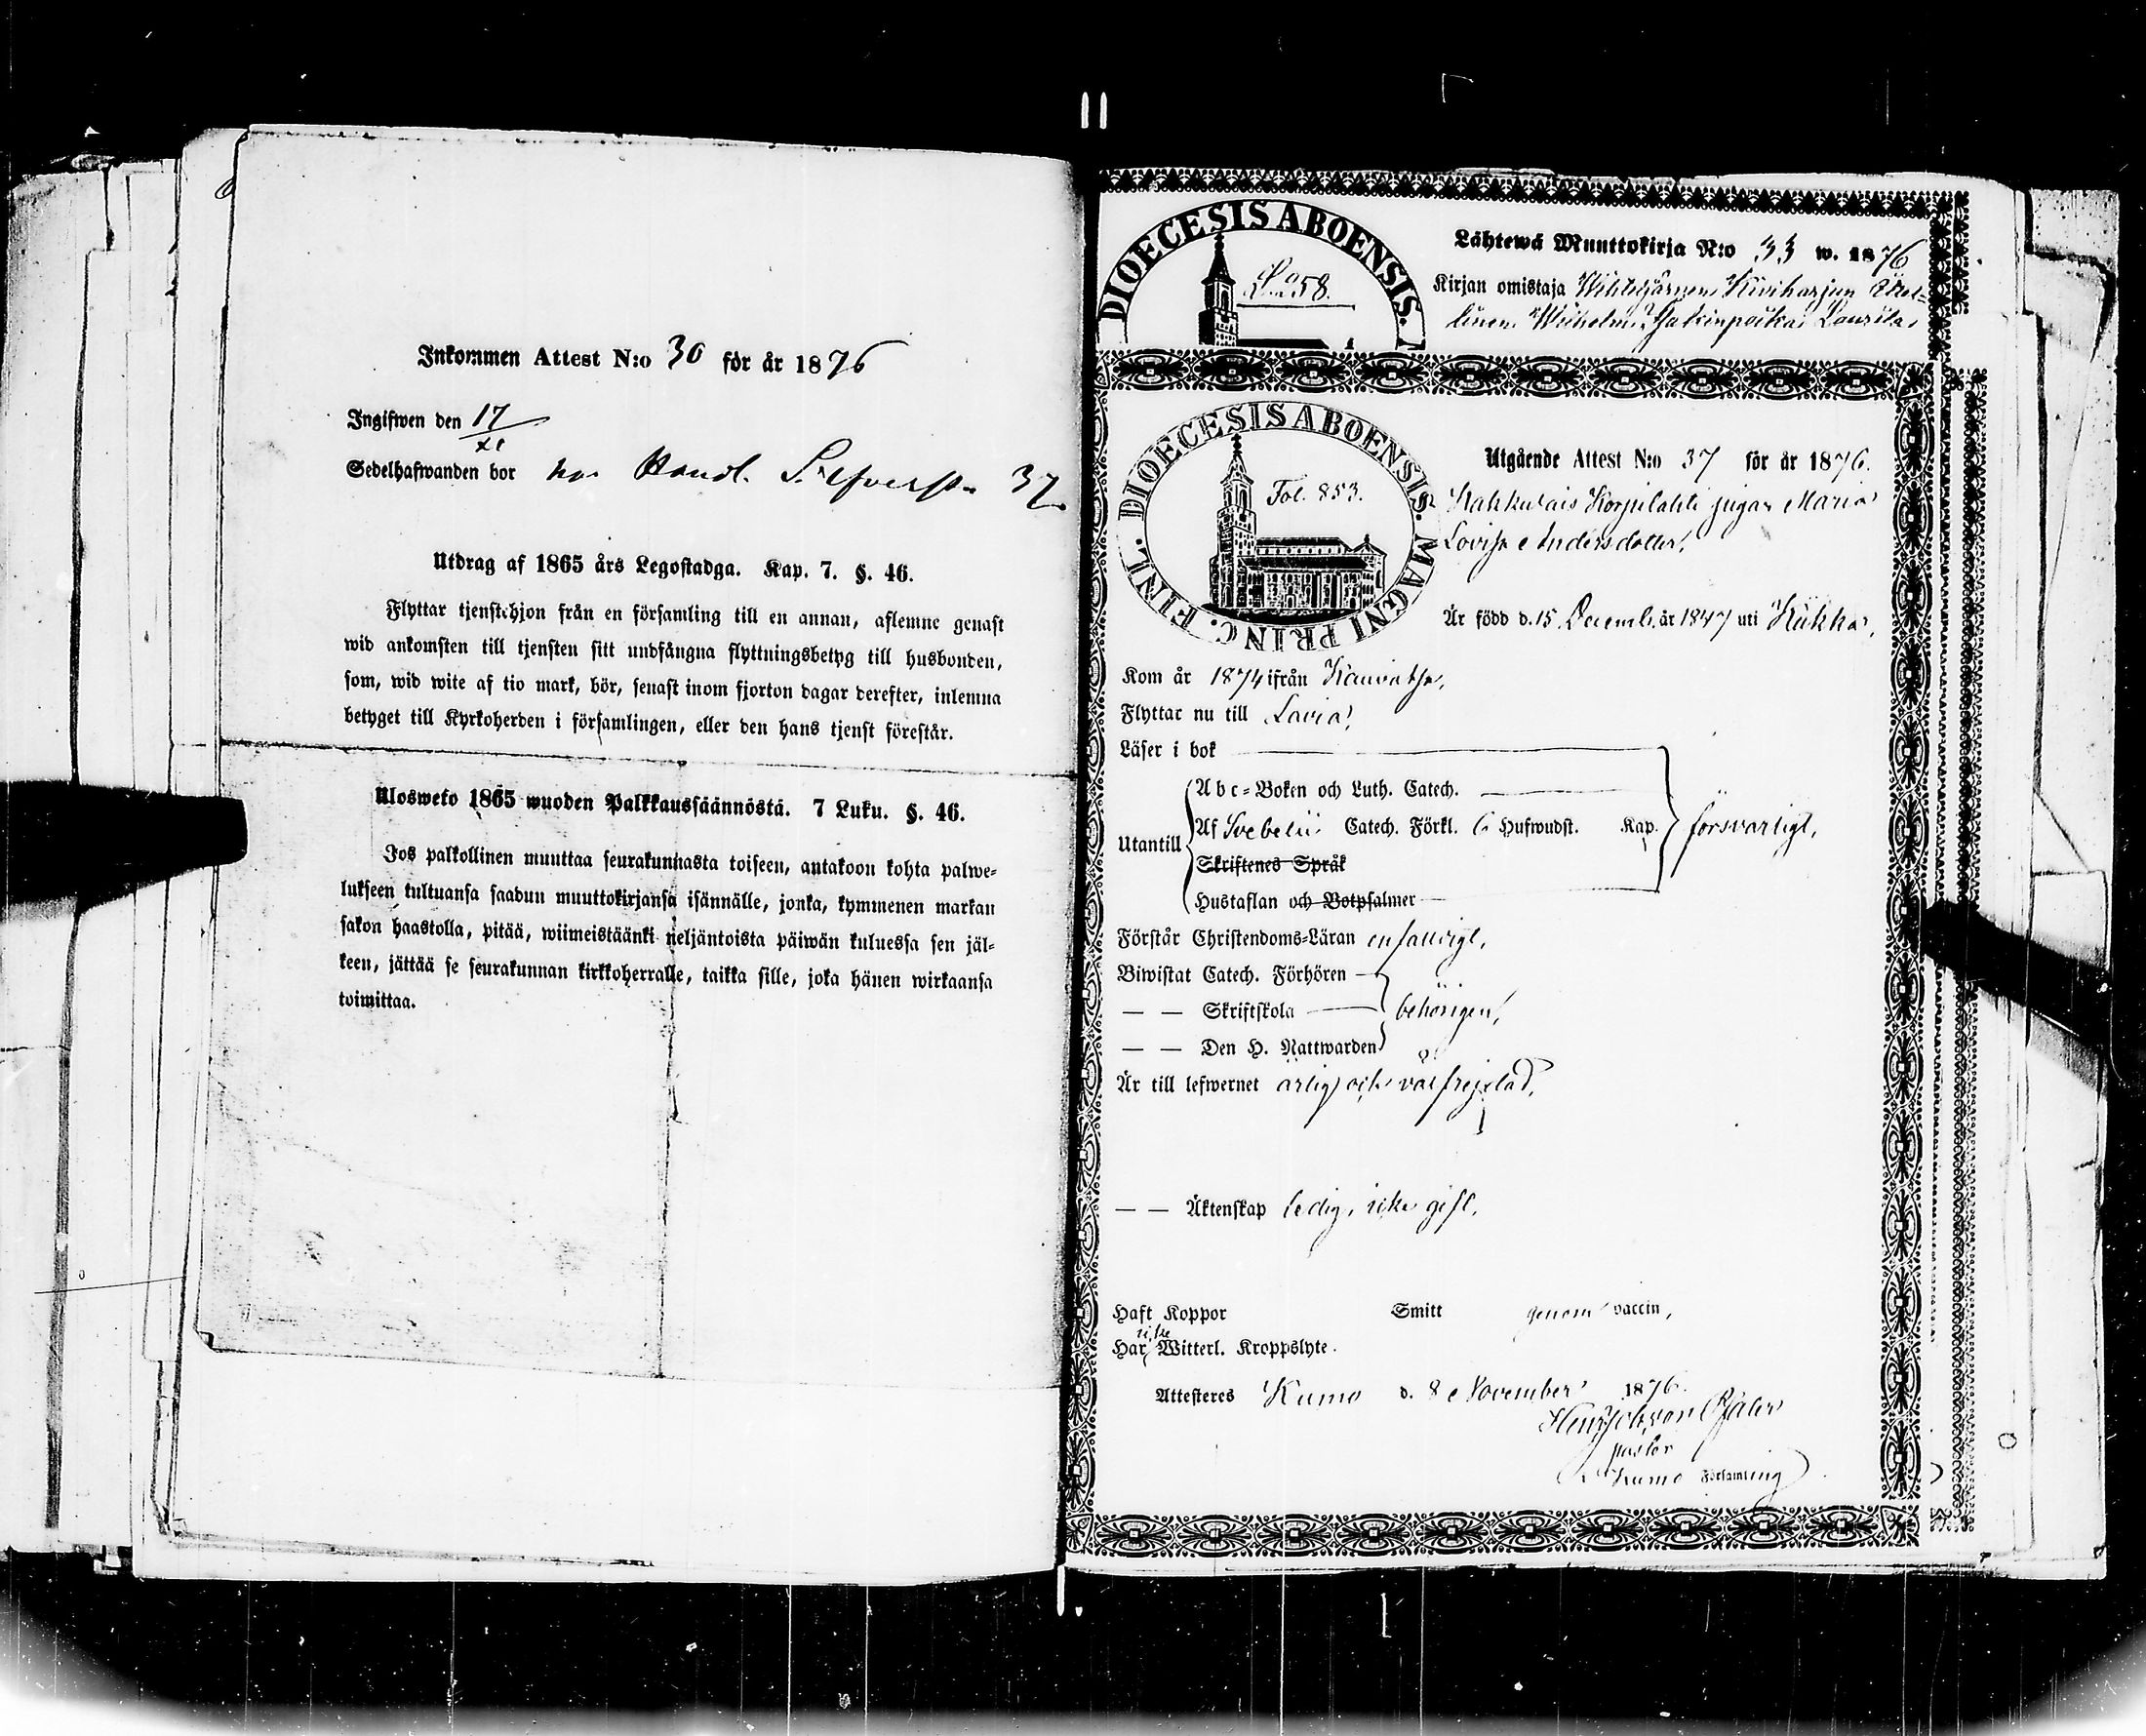 Inkommen Attest N:o 30 för år 1876
Ingifwen den 17/XI
Sedelhafwanden bor hos Handl. 37
Utdrag af 1865 års Legostadga. Kap. 7. §. 46.
Flyttar tjenstehjon från en församling till en annan, aflemne genast
wid ankomsten till tjensten sitt undfångna flyttningsbetyg till husbonden,
som, wid wite af tio mark, bör, senast inom fjorton dagar derefter, inlemna
betyget till Kyrkoherden i församlingen, eller den hans tjenst förestår.
Ulosweto 1865 wuoden Palkkaussäännöstä. 7 Luku. §. 46.
Jos palkollinen muuttaa seurakunnasta toiseen, antakoon kohta palwe-
lukseen tultuansa saadun muuttokirjansa isännälle, jonka, kymmenen markan
sakon haastolla, pitää, wiimeistäänki neljäntoista päiwän kuluessa sen jäl-
keen, jättää se seurakunnan kirkkoherralle, taikka sille, joka hänen wirkaansa
toimittaa.
DIOECESIS ABOENSIS.
58.
Lähtewä Muuttokirja N:o 33 w. 1876
Kirjan omistaja Kiviharjun
DIOECESIS ABOENSIS. MAGNI PRINC. FINL.
Fol. 853.
Utgående Attest N:o 37 för år 1876.
Kakkulais Korpilahti pigan Maria
Lovisa Andersdotter,
Är född d. 15 Decemb. år 1847 uti Kiikka,
Kom år 1874 ifrån Kauvatsa,
Flyttar nu till Lavia,
Läser i bok
Utantill
Abc=Boken och Luth. Catech.
Af Svebelii Catech. Förkl. 6 Hufwudst. Kap.
försvarligt,
Skriftenes Språk
Hustaflan och Botpsalmer
Förstår Christendoms=Läran enfaldigt,
Biwistat Catech. Förhören
— — Skriftskola
behörigen,
— — Den H. Nattwarden
Är till lefwernet ärlig och välfrejdad,
— — Äktenskap ledig, icke gift,
Haft Koppor Smitt genom vaccin,
Har icke Witterl. Kroppslyte.
Attesteres Kumo d. 8 November 1876.
pastor
Kumo Församling